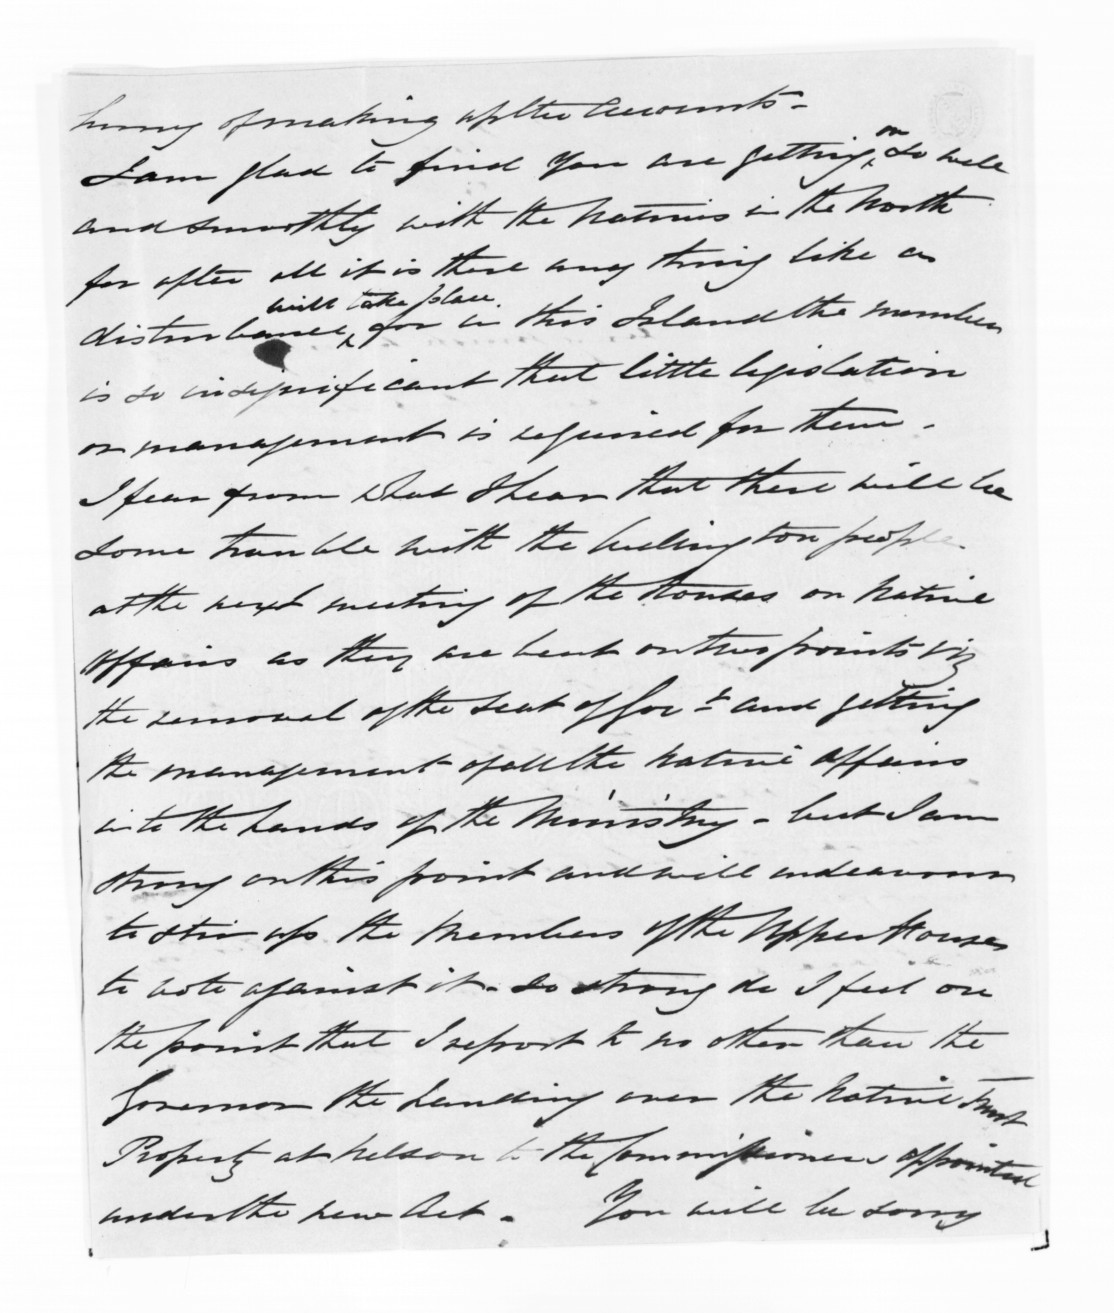 hurry of making up the Accounts -
I am glad to find you are getting on so well
and smoothly with the Natives in the North
for after all it is there any thing like a
disturbance will take place. for in this Island the number
is so insignificant that little legislation
or management is required for them -
I fear from what I hear that there will be
some trouble with the Wellington people
at the next meeting of the Houses on Native
Affairs as they are bent on two points viz
the removal of the Seat of Govt and getting
the management of all the Native Affairs
into the hands of the Ministry - but I am
strong on this point and will endeavour
to stir up the Members of the Upper House
to vote against it - so strong do I feel on
the point that I report to no other than the
Governor the handing over the Native Trust
Property at Nelson to the Commissioners appointed
under the new Act - You will be sorry